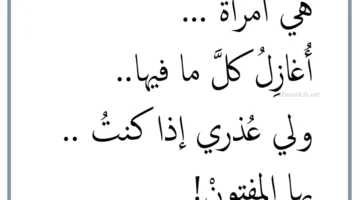 هي امرأة ...
أُغازِلُ كلَّ ما فيها..
ولي عُذري إذا كنتُ ..
بها المفتونْ!